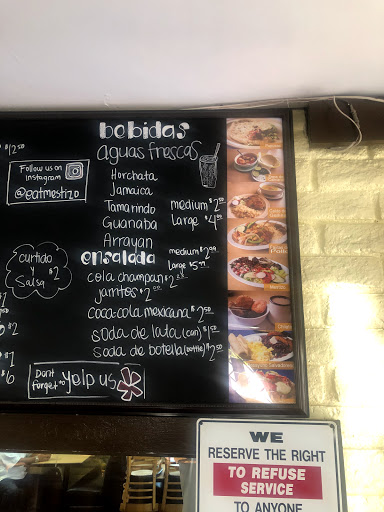 $12.50
Follow us on
instagram
@eatmestizo
curtido
y $2
Salsa
$2
$6
Don't
forget to yelp us
bebidas
aguas frescas
Horchata
Jamaica
Tamarindo medium $2.50
Guanaba Large $4.50
Arrayan
ensalada medium $2.99
Large $5.99
cola champan $2.00
jarritos $2.00
coca-cola mexicana $2.50
soda de lata (can) $1.50
soda de botella (bottle) $2.50
WE
RESERVE THE RIGHT
TO REFUSE
SERVICE
TO ANYONE